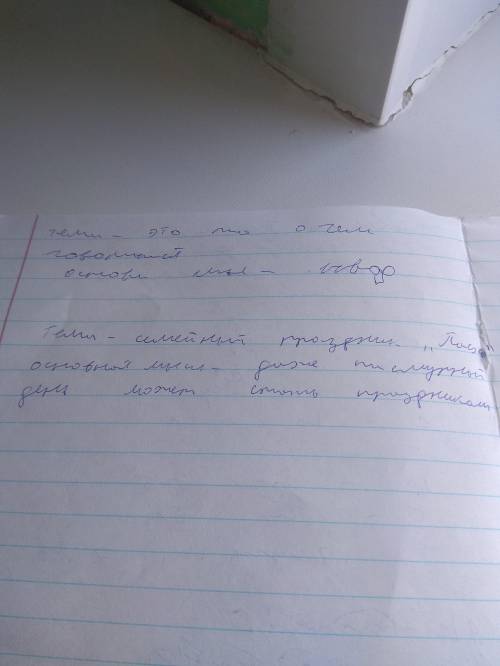 тема - это то о чем
говориться
основ мысл -
тема - семейный праздник
основной мысл - даже пасмурный
день может стать праздником